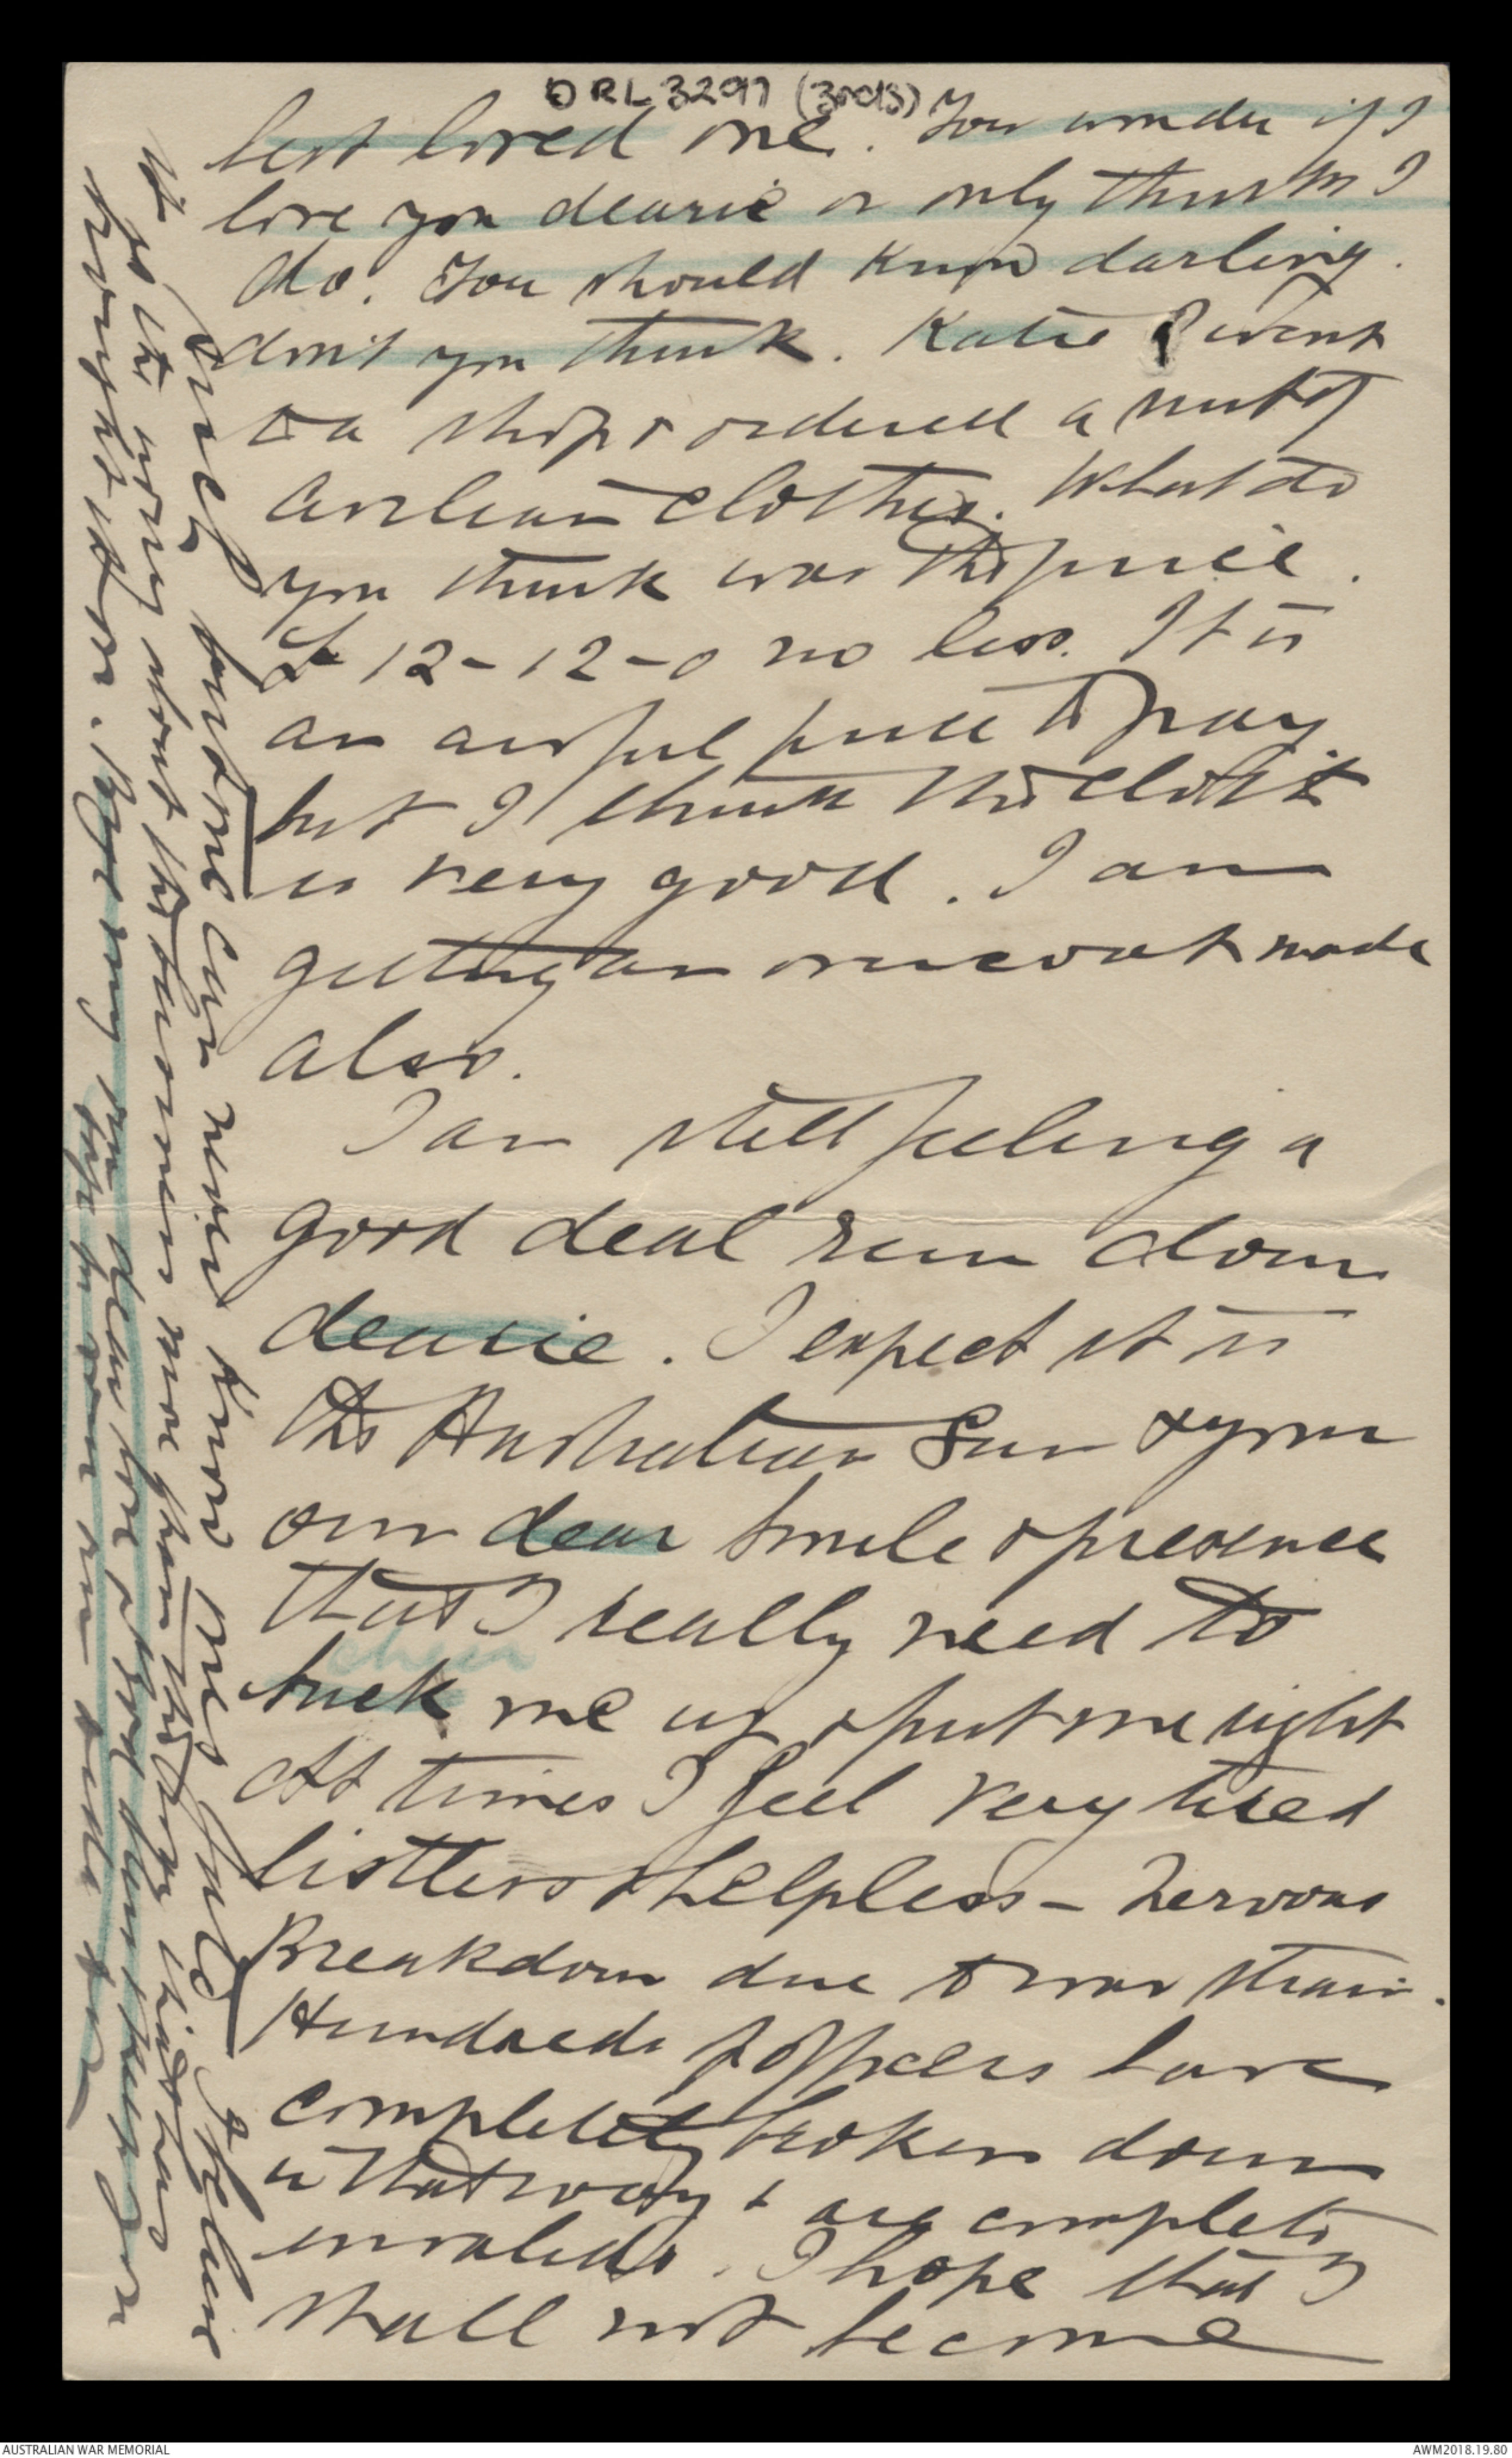 DRL 3297 (3rd S)
best loved one. You wonder if I
love you dearie or only think I
do. You should know darling.
don't you think. Katie & I went
to a shop & ordered a suit of
civilian clothes. What do
you think was the price.
£12-12-0 no less. It is
an awful price to pay
but I think the cloth
is very good. I am
getting an overcoat made
also.
I am still feeling a
good deal run down
dearie. I expect it is
the Australian Sun & your
own dear smile & presence
that I really need to
cheer
buck me up & put me right
At times I feel very tired
listless & helpless - Nervous
Breakdown due to war strain.
Hundreds of officers have
completely broken down
in that way & are complete
invalids. I hope that I
shall not become
but one can never know